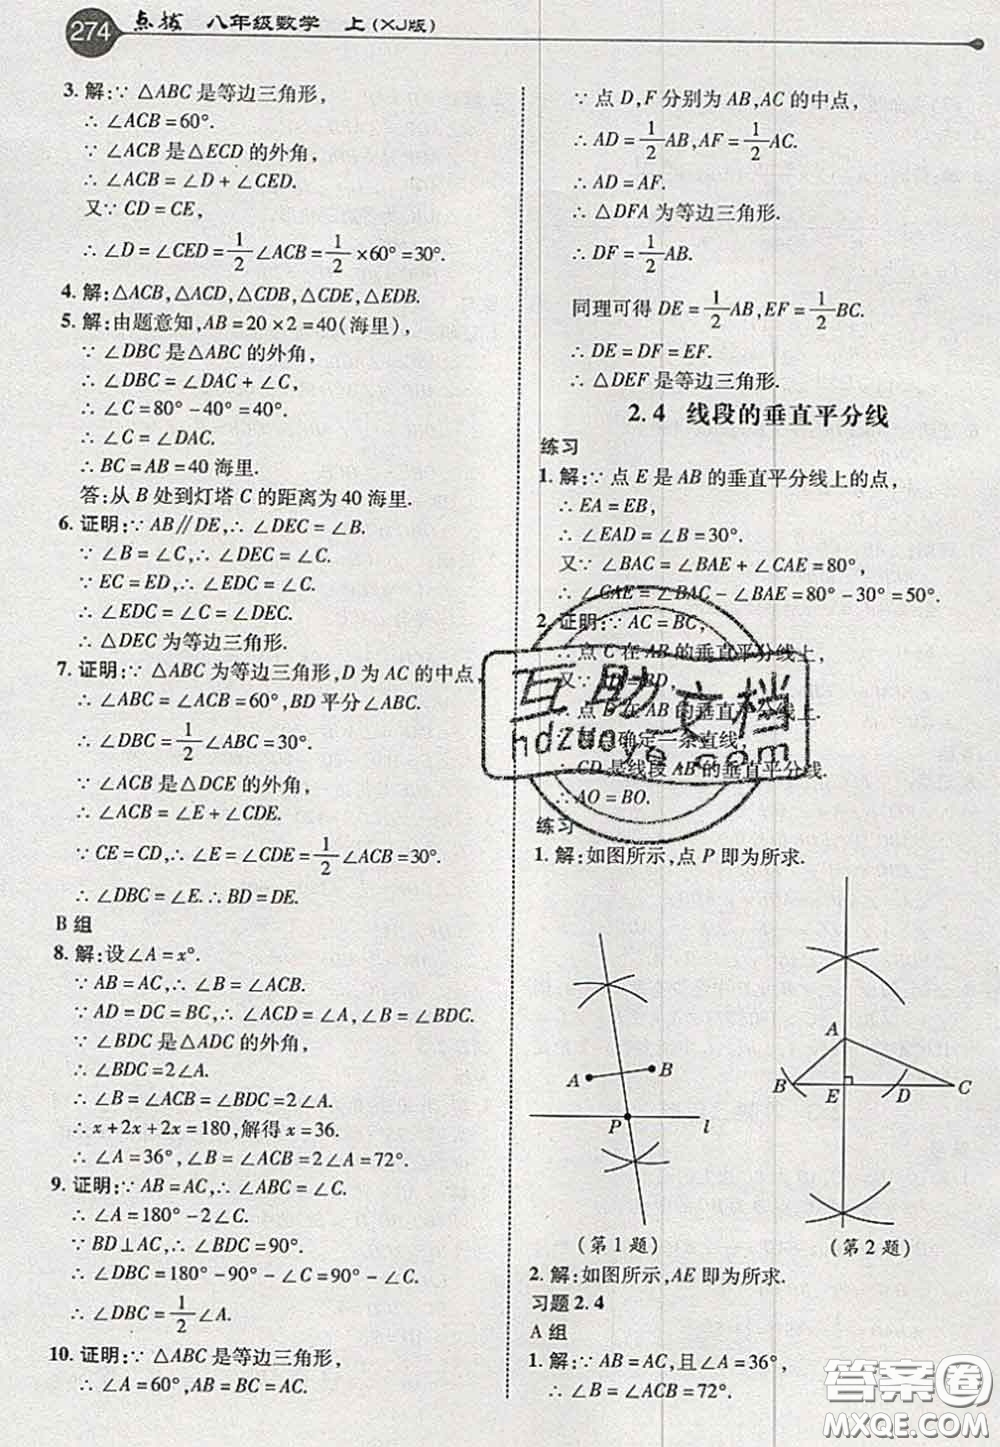 274 点拨 八年级数学 上(XJ版)
3. 解:∵ △ABC 是等边三角形,
∴ ∠ACB=60°.
∵ ∠ACB 是△ECD 的外角,
∴ ∠ACB=∠D+∠CED.
又∵ CD=CE,
∴ ∠D=∠CED=1/2∠ACB=1/2×60°=30°.
4. 解:△ACB,△ACD,△CDB,△CDE,△EDB.
5. 解:由题意知,AB=20×2=40(海里),
∵ ∠DBC 是△ABC 的外角,
∴ ∠DBC=∠DAC+∠C,
∴ ∠C=80°-40°=40°.
∴ ∠C=∠DAC.
∴ BC=AB=40 海里.
答:从 B 处到灯塔 C 的距离为 40 海里.
6. 证明:∵ AB∥DE,∴ ∠DEC=∠B.
∵ ∠B=∠C,∴ ∠DEC=∠C.
∵ EC=ED,∴ ∠EDC=∠C.
∴ ∠EDC=∠C=∠DEC.
∴ △DEC 为等边三角形.
7. 证明:∵ △ABC 为等边三角形,D 为 AC 的中点,
∴ ∠ABC=∠ACB=60°,BD 平分∠ABC.
∴ ∠DBC=1/2∠ABC=30°.
∵ ∠ACB 是△DCE 的外角,
∴ ∠ACB=∠E+∠CDE.
∵ CE=CD,∴ ∠E=∠CDE=1/2∠ACB=30°.
∴ ∠DBC=∠E.∴ BD=DE.
B 组
8. 解:设∠A=x°.
∵ AB=AC,∴ ∠B=∠ACB.
∵ AD=DC=BC,∴ ∠ACD=∠A,∠B=∠BDC.
∵ ∠BDC 是△ADC 的外角,
∴ ∠BDC=∠A+∠ACD=2∠A.
∴ ∠B=∠ACB=∠BDC=2∠A.
∴ x+2x+2x=180,解得 x=36.
∴ ∠A=36°,∠B=∠ACB=2∠A=72°.
9. 证明:∵ AB=AC,∴ ∠ABC=∠C.
∴ ∠A=180°-2∠C.
∵ BD⊥AC,∴ ∠BDC=90°.
∴ ∠DBC=180°-90°-∠C=90°-∠C.
∴ ∠DBC=1/2∠A.
10. 证明:∵ △ABC 是等边三角形,
∴ ∠A=60°,AB=BC=AC.
∵ 点 D,F 分别为 AB,AC 的中点,
∴ AD=1/2AB,AF=1/2AC.
∴ AD=AF.
∴ △DFA 为等边三角形.
∴ DF=1/2AB.
同理可得 DE=1/2AB,EF=1/2BC.
∴ DE=DF=EF.
∴ △DEF 是等边三角形.
2.4 线段的垂直平分线
练习
1. 解:∵ 点 E 是 AB 的垂直平分线上的点,
∴ EA=EB,
∴ ∠EAD=∠B=30°.
又∵ ∠BAC=∠BAE+∠CAE=80°,
∴ ∠CAE=∠BAC-∠BAE=80°-30°=50°.
2. 证明:∵ AC=BC,
∴ 点 C 在 AB 的垂直平分线上,
又∵ AD=BD,
∴ 点 D 在 AB 的垂直平分线上.
确定一条直线,
∴ CD 是线段 AB 的垂直平分线.
∴ AO=BO.
互助文档
hdzuoye.com
练习
1. 解:如图所示,点 P 即为所求.
A
B
P
l
A
B
E
D
C
(第 1 题)
(第 2 题)
2. 解:如图所示,AE 即为所求.
习题 2.4
A 组
1. 解:∵ AB=AC,且∠A=36°,
∴ ∠B=∠ACB=72°.
答案圈
MXQE.COM